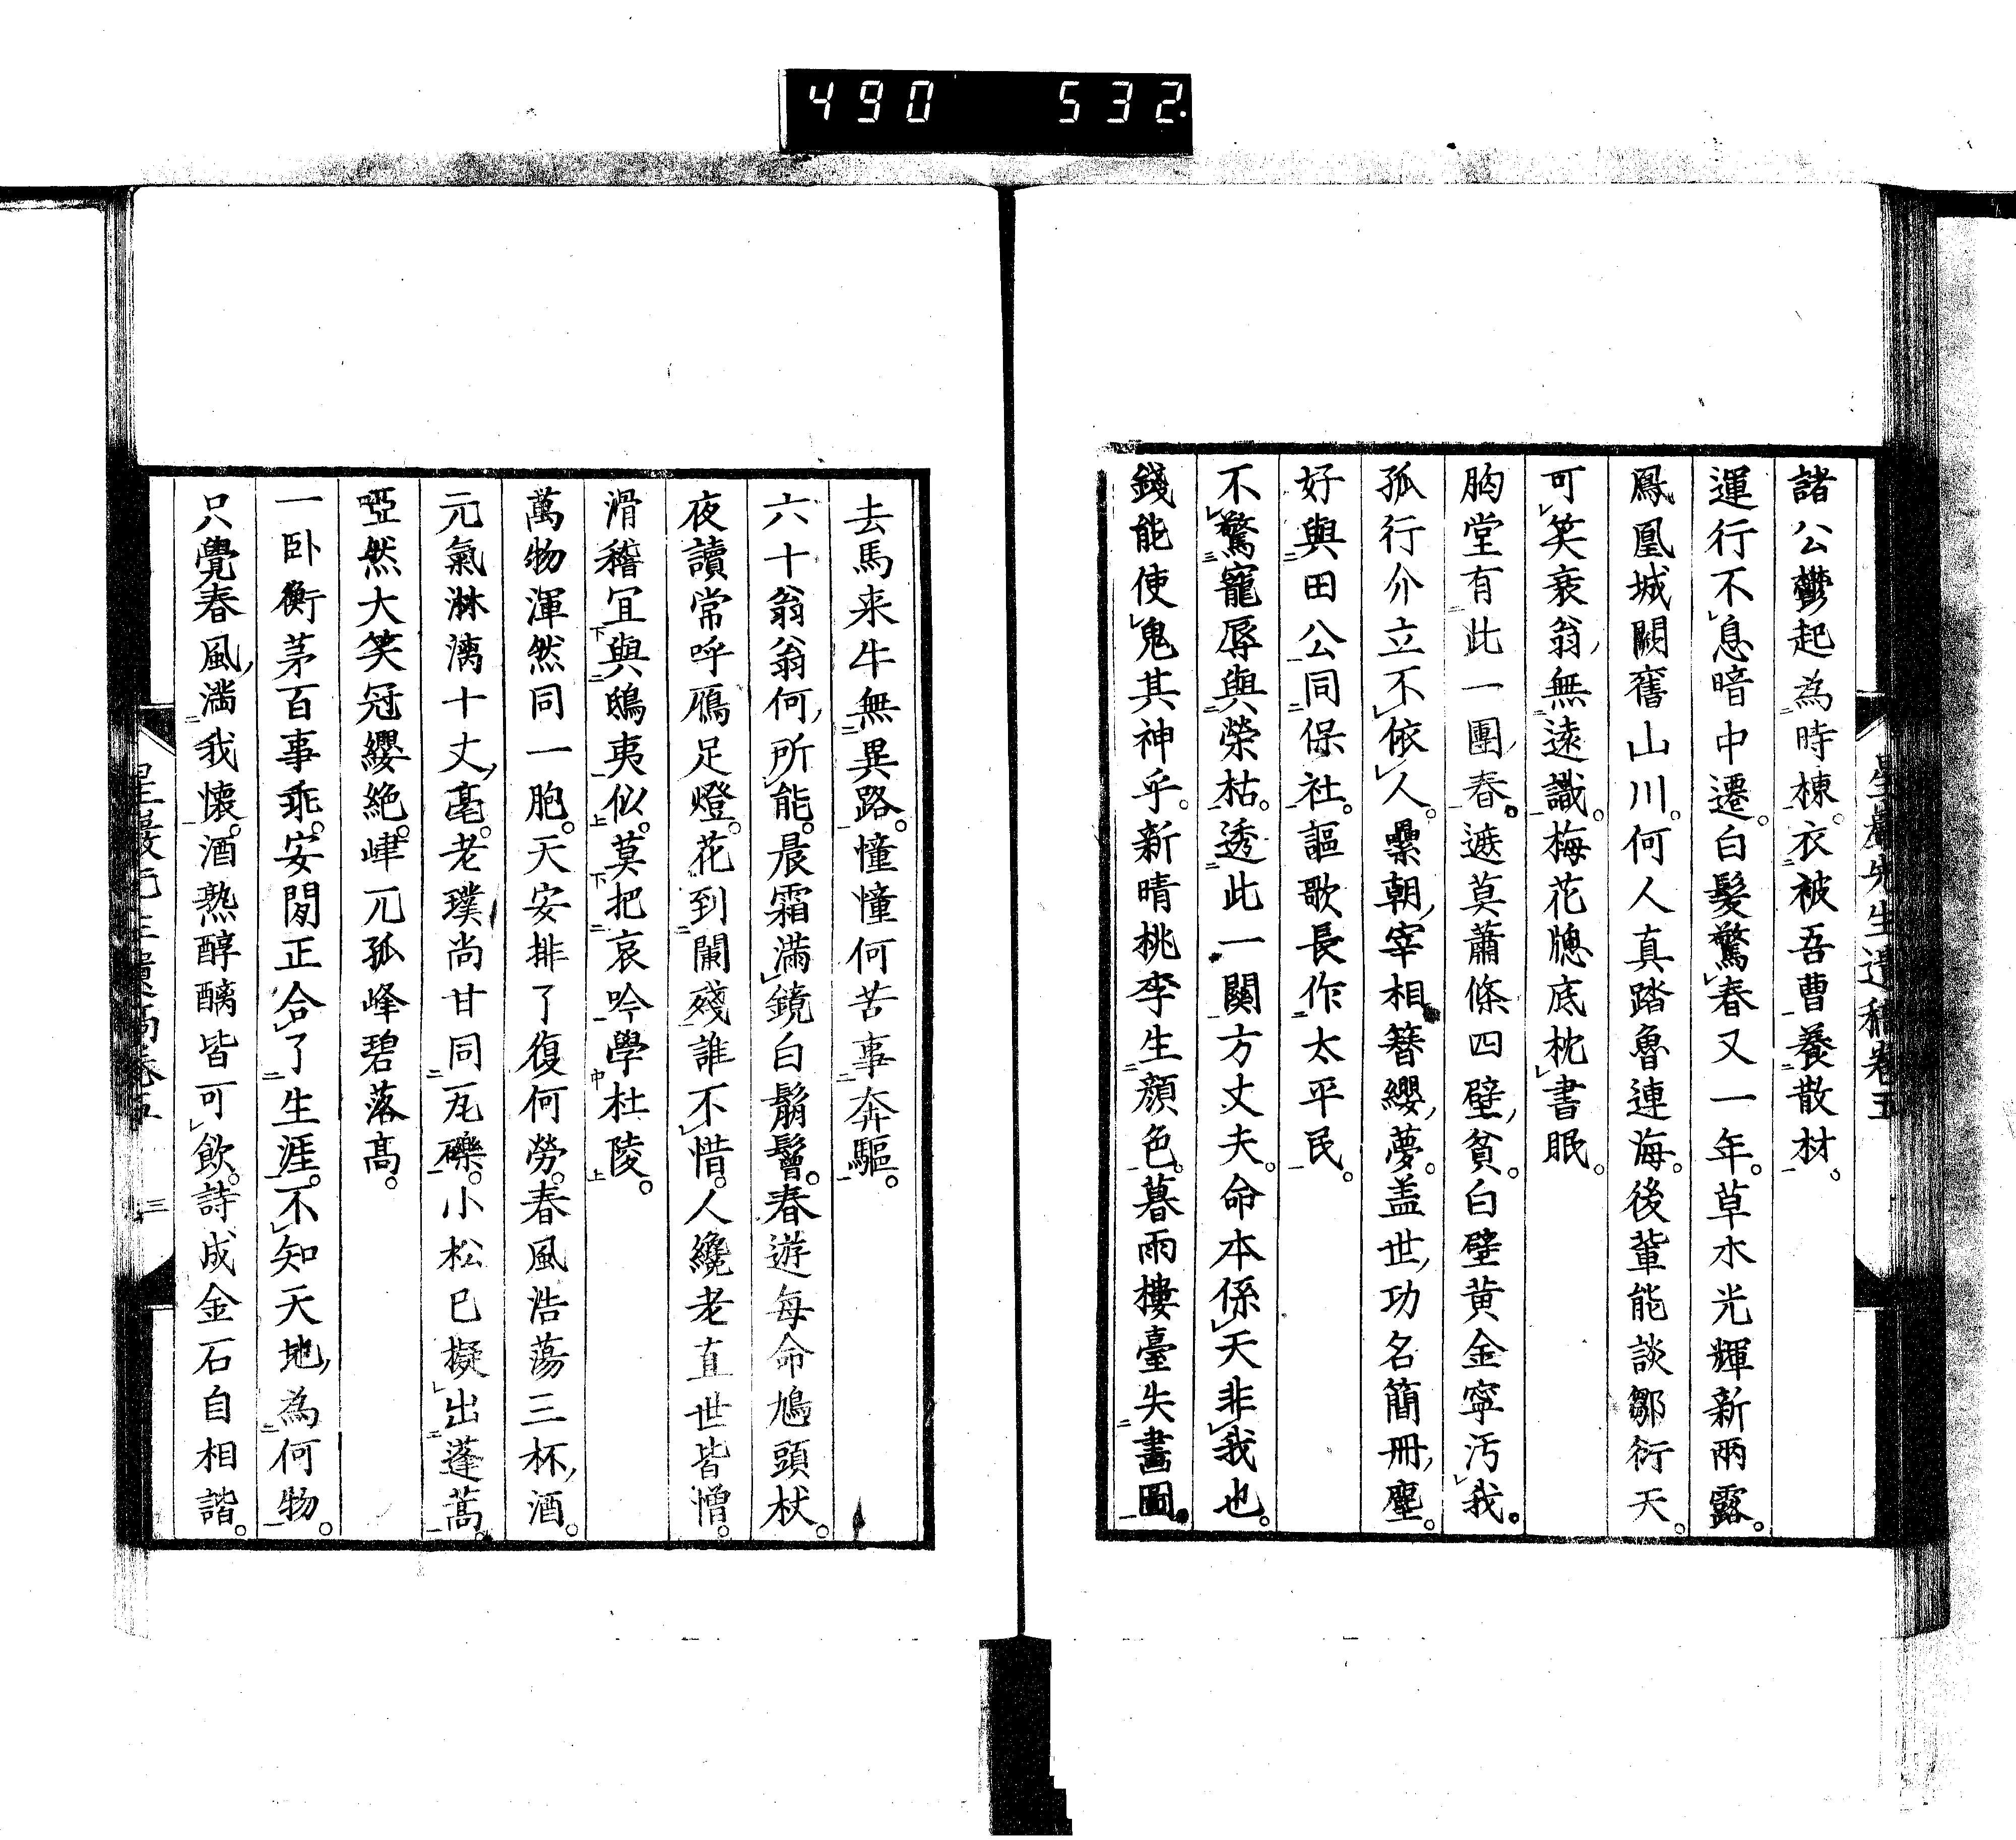 490 532
星巖先生遺稿卷五
諸公鬱起為時棟。衣被吾曹養散材。
運行不息暗中遷。白髮驚春又一年。草木光輝新雨露。
鳳凰城闕舊山川。何人真踏魯連海。後輩能談鄒衍天。
可笑衰翁無遠識。梅花牕底枕書眠。
胸堂有此一團春。遮莫蕭條四壁貧。白璧黃金寧汚我。
孤行介立不依人。纍朝宰相簪纓夢。盖世功名簡冊塵。
好與田公同保社。謳歌長作太平民。
不驚寵辱與榮枯。透此一關方丈夫。命本係天非我也。
錢能使鬼其神乎。新晴桃李生顏色。暮雨樓臺失畵圖。
去馬来牛無異路。憧憧何苦事奔驅。
六十翁翁何所能。晨霜滿鏡白鬅鬙。春遊每命鳩頭杖。
夜讀常呼鴈足燈。花到闌殘誰不惜。人纔老直世皆憎。
滑稽宜與鴟夷似。莫把哀吟學杜陵。
萬物渾然同一胞。天安排了復何勞。春風浩蕩三杯酒。
元氣淋漓十丈毫。老璞尚甘同瓦礫。小松已擬出蓬蒿。
啞然大笑冠纓絶。嵂兀孤峰碧落高。
一卧衡茅百事乖。安閒正合了生涯。不知天地為何物。
只覺春風滿我懷。酒熟醇醨皆可飲。詩成金石自相諧。
星巖先生遺稿卷五 三